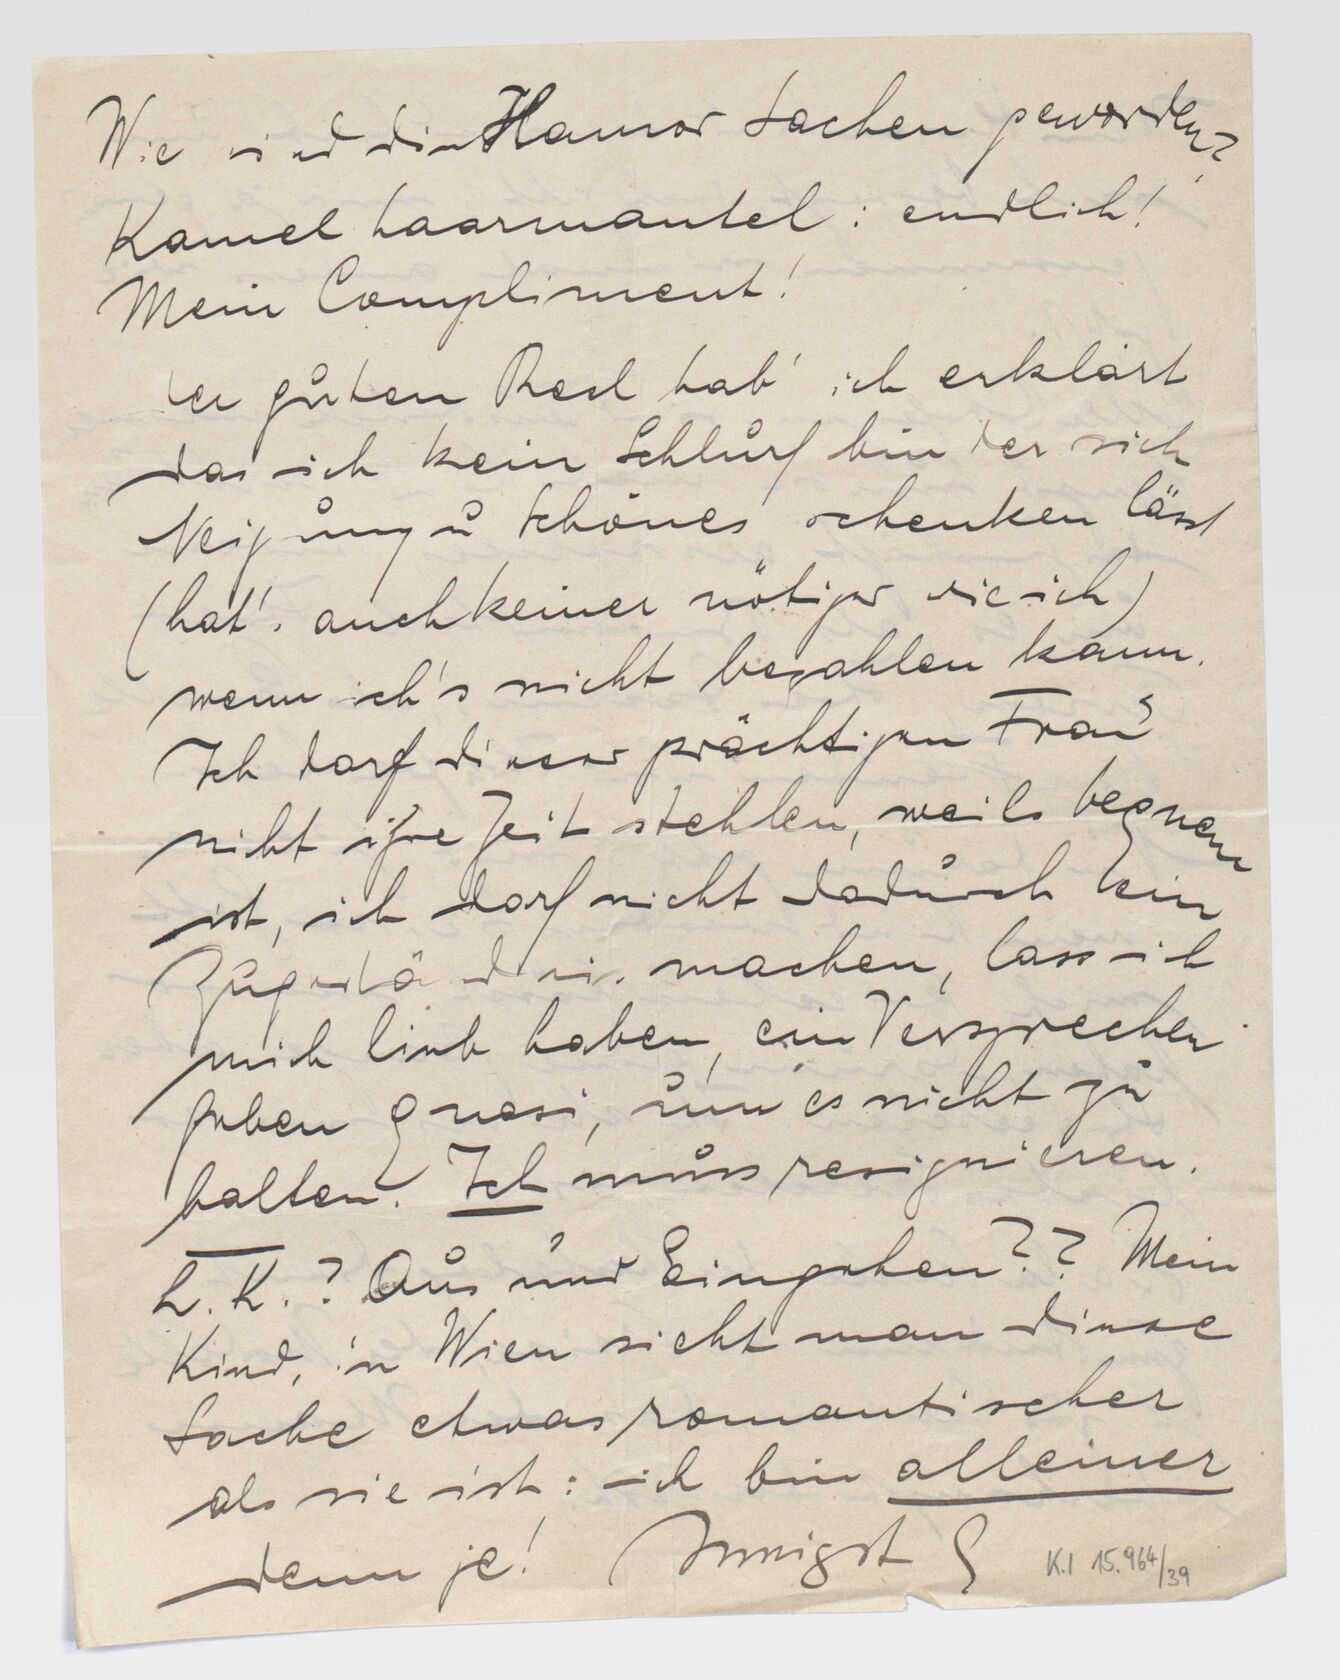 Wie sind die Hamor Sachen geworden?
Kamelhaarmantel: endlich!
Mein Compliment!
der guten Resl hab' ich erklärt
das ich kein Schlurf bin der sich
Neigung u Schönes schenken lässt
(hat's auch keiner nötiger wie ich)
wenn ich's nicht bezahlen kann.
Ich darf dieser prächtigen Frau
nicht ihre Zeit stehlen, weils bequem
ist, ich darf nicht dadurch kein
Zugeständnis machen, lass ich
mich lieb haben, ein Versprechen
geben quasi, um es nicht zu
halten. Ich muss resignieren.
L. K.? Aus und Eingehen?? Mein
Kind, in Wien sieht man diese
Sache etwas romantischer
als sie ist: ich bin alleiner
denn je! Innigst E
K.I 15.964/39